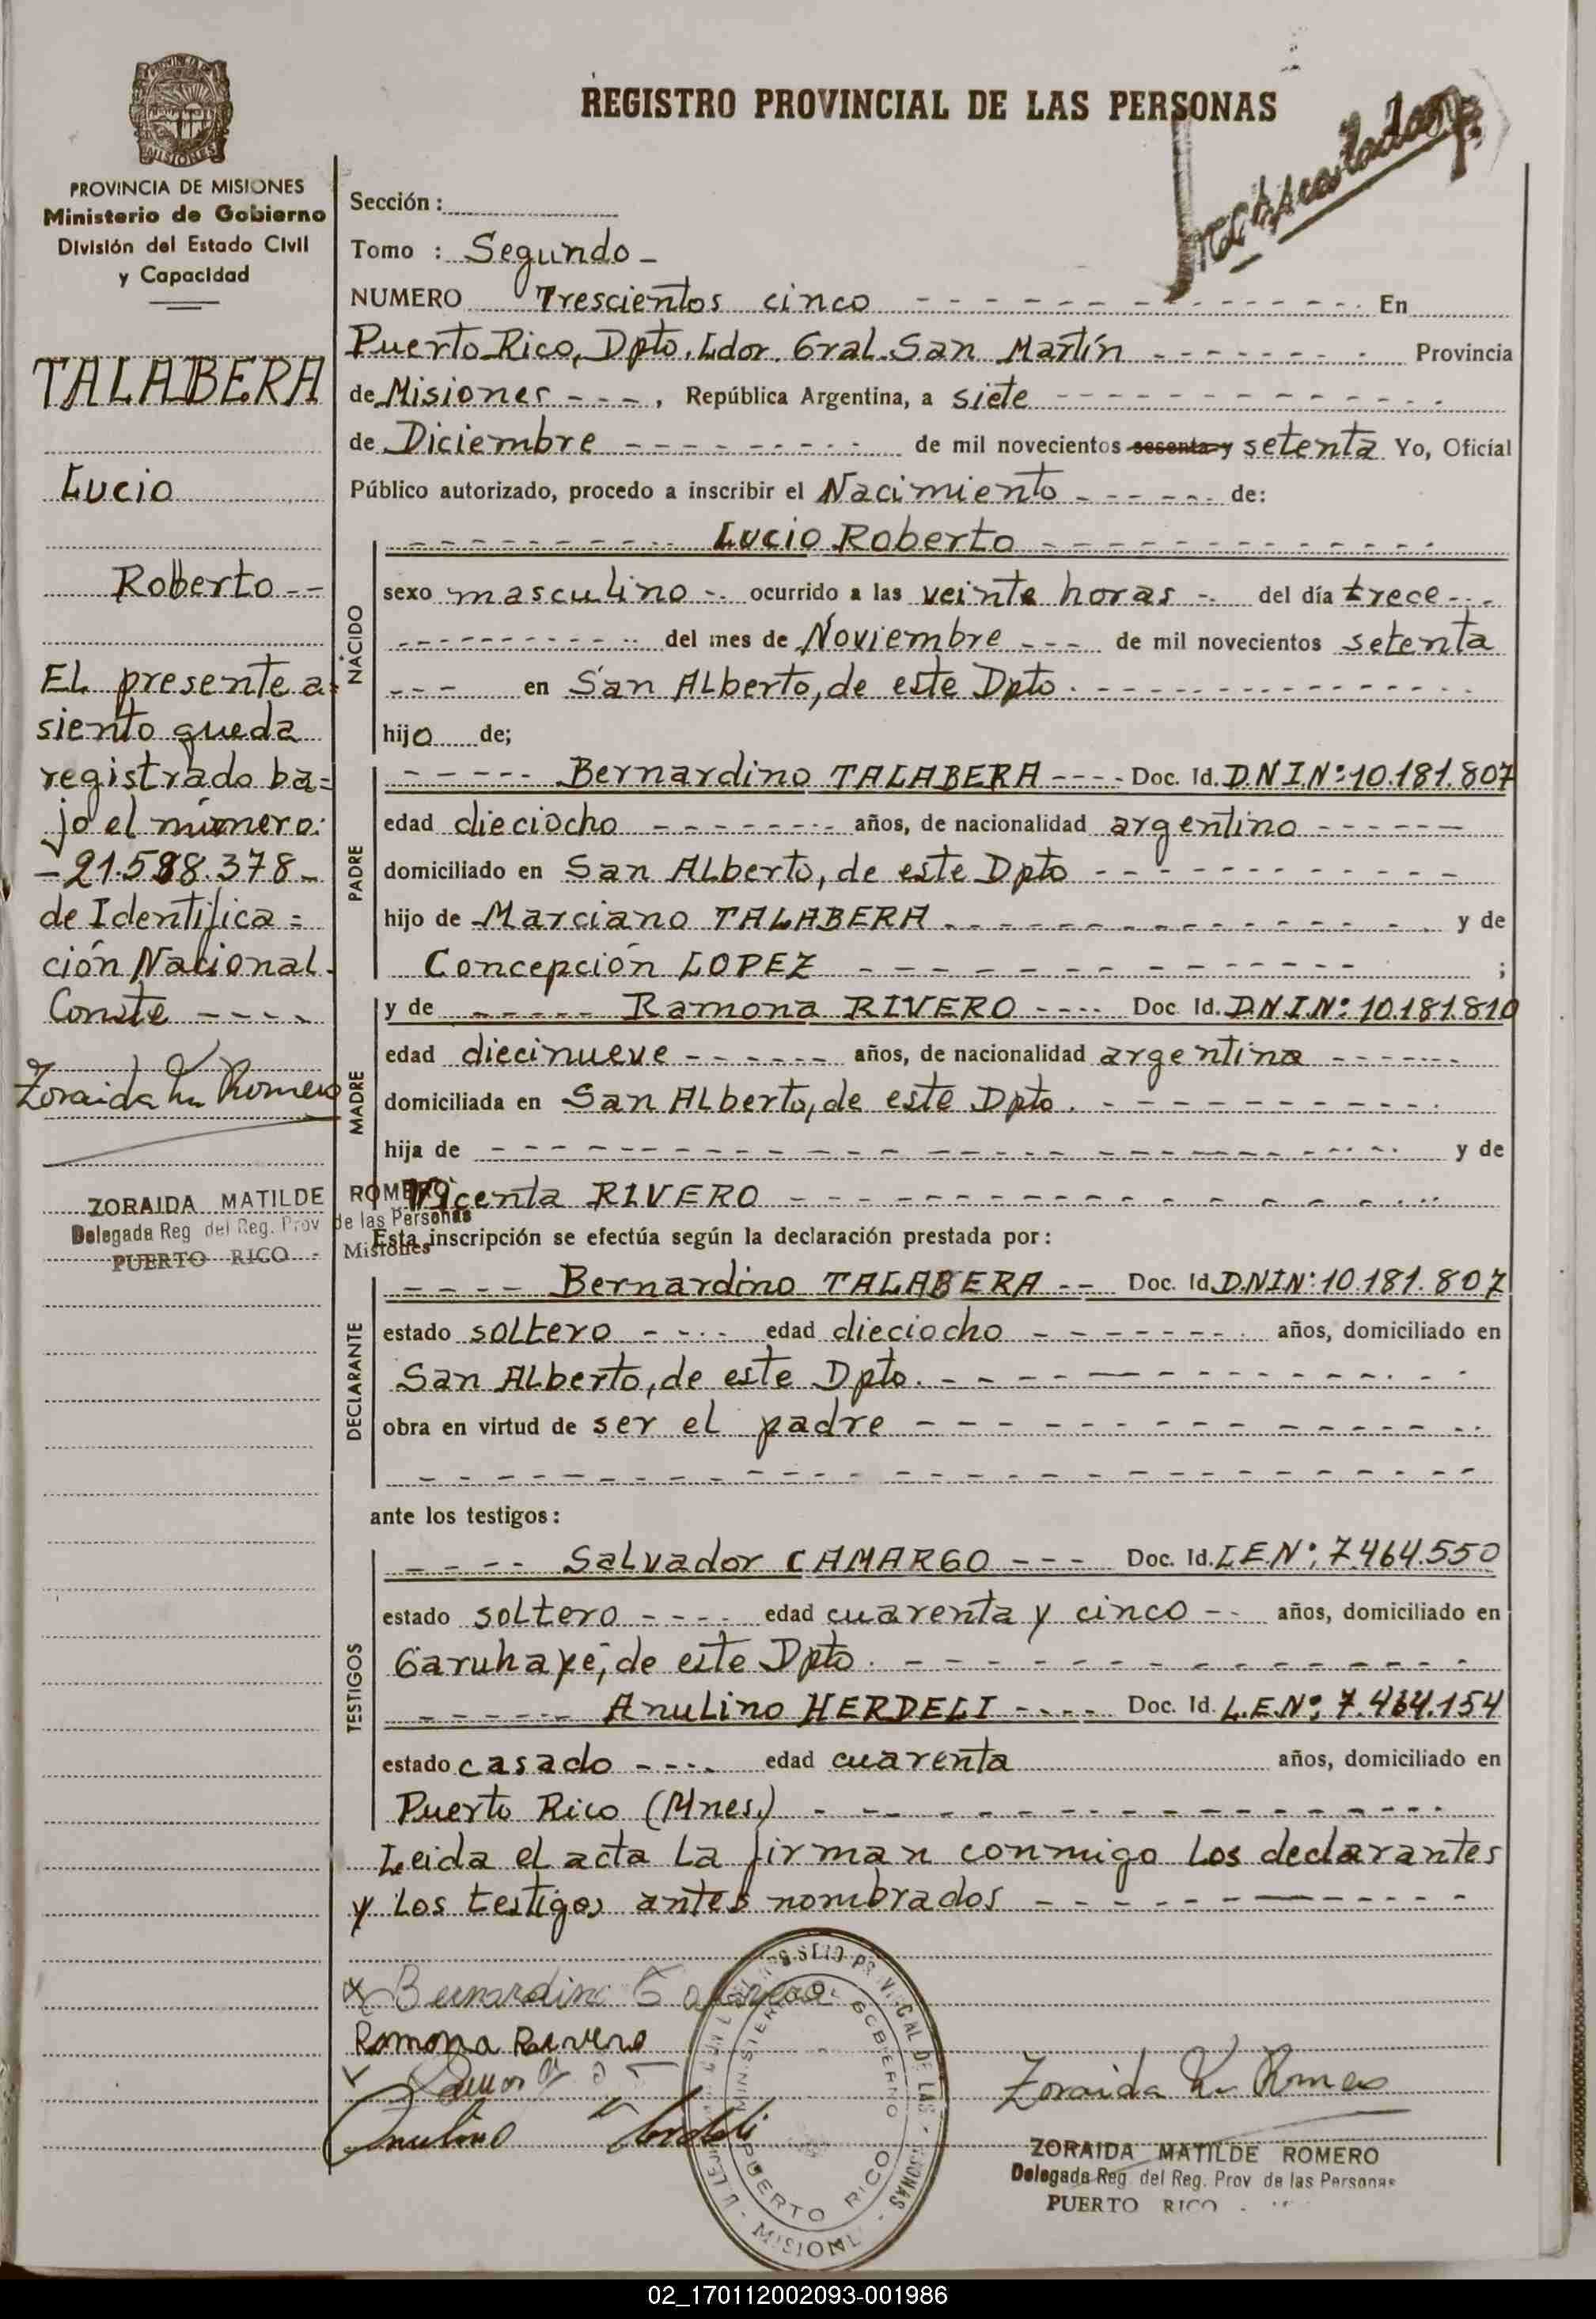 REGISTRO PROVINCIAL DE LAS PERSONAS
MISIONES
PROVINCIA DE MISIONES
Ministerio de Gobierno
División del Estado Civil
y Capacidad
TALABERA
Lucio
Roberto --
El presente a=
siento queda
registrado ba=
jo el número:
- 21.588.378 -
de Identifica=
ción Nacional.
Conste ----
Zoraida M. Romero
ZORAIDA MATILDE ROMERO
Delegada Reg. del Reg. Prov de las Personas
PUERTO RICO - Misiones
Sección :
Tomo : Segundo -
NUMERO Trescientos cinco - - - - - - En
Puerto Rico, Dpto. Ldor. Gral. San Martín - - - - - - Provincia
de Misiones - - - , República Argentina, a siete - - - - - -
de Diciembre - - - - - - de mil novecientos sesenta y setenta Yo, Oficial
Público autorizado, procedo a inscribir el Nacimiento - - - - - de:
- - - - - - Lucio Roberto - - - - - -
NACIDO
sexo masculino -. ocurrido a las veinte horas -. del día trece - - -
- - - - - - del mes de Noviembre - - - de mil novecientos setenta
- - - en San Alberto, de este Dpto. - - - - - -
hijo de;
PADRE
- - - - - Bernardino TALABERA - - - - Doc. Id. D.N.I.Nº: 10.181.807
edad dieciocho - - - - - - años, de nacionalidad argentino - - - - - -
domiciliado en San Alberto, de este Dpto - - - - - -
hijo de Marciano TALABERA - - - - - - y de
Concepción LOPEZ - - - - - - ;
MADRE
y de - - - - - Ramona RIVERO - - - - Doc. Id. D.N.I.Nº: 10.181.810
edad diecinueve - - - - - - años, de nacionalidad argentina - - - - - -
domiciliada en San Alberto, de este Dpto. - - - - - -
hija de - - - - - - y de
Vicenta RIVERO - - - - - -
Esta inscripción se efectúa según la declaración prestada por :
DECLARANTE
- - - - Bernardino TALABERA - - Doc. Id. D.N.I.Nº: 10.181.807
estado soltero - - - - edad dieciocho - - - - - - años, domiciliado en
San Alberto, de este Dpto. - - - - - -
obra en virtud de ser el padre - - - - - -
- - - - - -
ante los testigos :
TESTIGOS
- - - - Salvador CAMARGO - - - Doc. Id. L.E.Nº: 7.464.550
estado soltero - - - - edad cuarenta y cinco - - años, domiciliado en
Garuhapé, de este Dpto. - - - - - -
- - - - - Anulino HERDELI - - - - Doc. Id. L.E.Nº: 7.464.154
estado casado - - - - edad cuarenta años, domiciliado en
Puerto Rico (Mnes.) - - - - - -
Leida el acta la firman conmigo los declarantes
y los testigos antes nombrados - - - - - -
x Bernardino
Ramona Rivero
Anulino
MINISTERIO DE GOBIERNO
PUERTO RICO
Zoraida M. Romero
ZORAIDA MATILDE ROMERO
Delegada Reg. del Reg. Prov de las Personas
PUERTO RICO -
02_170112002093-001986